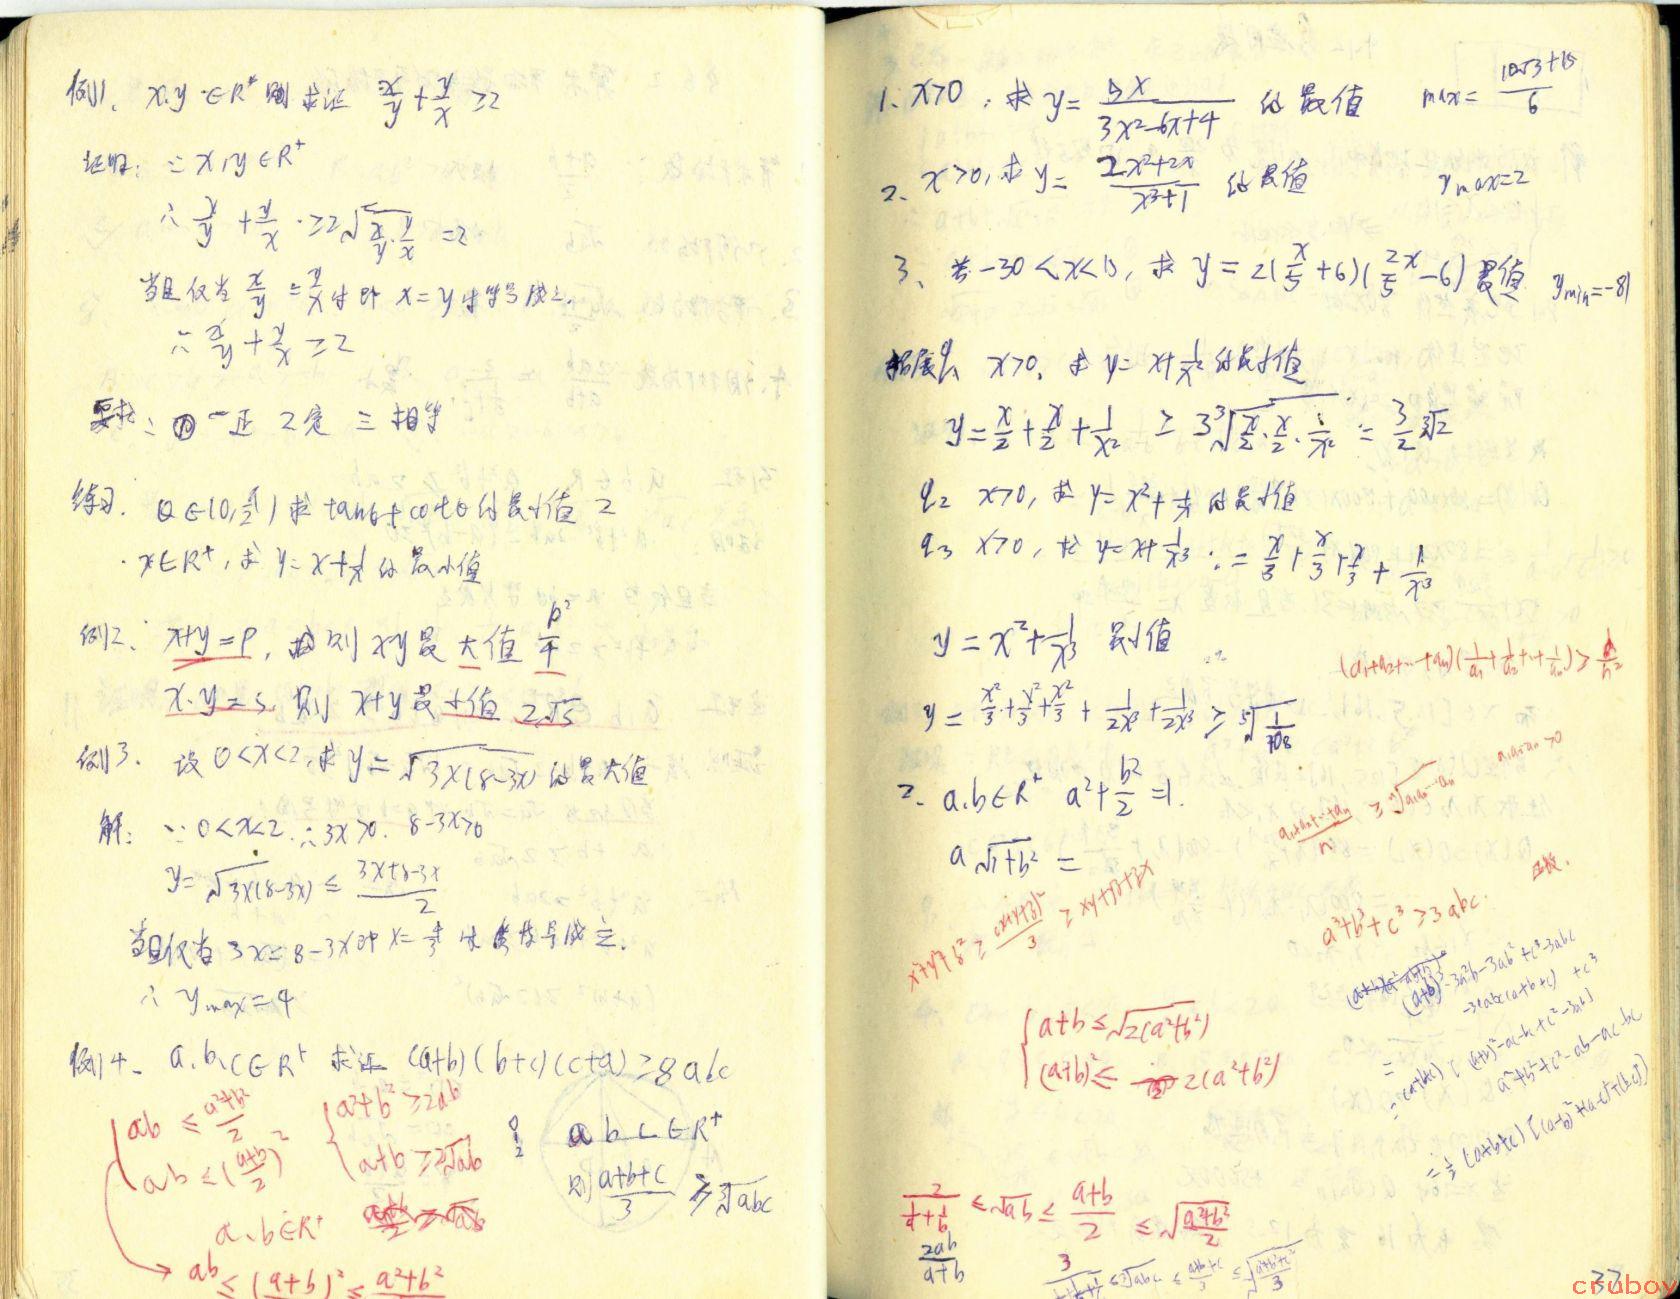 例1. x.y ∈R⁺ 则 求证 x/y + y/x ≥2
证明: ∵ x,y∈R⁺
∴ x/y + y/x ≥2√(x/y·y/x) =2
当且仅当 x/y = y/x 时即 x=y时等号成立.
∴ x/y + y/x ≥2
要求: 一正 2定 三相等
练习. θ∈(0,π/2) 求 tanθ+cotθ的最小值 2
x∈R⁺, 求 y=x+1/x 的最小值
例2. x+y=P, 则 xy最大值 p²/4
x.y=s, 则 x+y最小值 2√s
例3. 设 0<x<2,求 y=√(3x(8-3x)) 的最大值
解: ∵ 0<x<2 ∴3x>0. 8-3x>0
y=√(3x(8-3x)) ≤ (3x+8-3x)/2
当且仅当 3x=8-3x即 x=4/3 时 等号成立.
∴ ymax=4
例4. a.b.c∈R⁺ 求证 (a+b)(b+c)(c+a)≥8abc
ab ≤ (a²+b²)/2
ab ≤ ((a+b)/2)²
a²+b² ≥2ab
a+b ≥2√ab
a b c ∈R⁺
则 (a+b+c)/3 ≥ ³√abc
a.b∈R⁺
ab ≤ (a+b)² ≤ a²+b²
1. x>0, 求 y= 5x/(3x²-6x+4) 的最值 max= (10√3+15)/6
2. x>0,求 y= (2x²+2x)/(x²+1) 的最值 ymax=2
3. 若 -30<x<15, 求 y=2(x/5+6)(2x/5-6) 最值 ymin=-81
拓展 q₁ x>0, 求 y=x+1/x² 的最小值
y=x/2+x/2+1/x² ≥ 3³√(x/2·x/2·1/x²) = 3/2 ³√2
q₂ x>0, 求 y=x²+1/x 的最小值
q₃ x>0, 求 y=x+1/x³ = x/3+x/3+x/3+1/x³
y=x²+1/x³ 最小值
(a₁+a₂+…+aₙ)(1/a₁+1/a₂+…+1/aₙ)≥n²
y= x²/3+x²/3+x²/3+1/2x³+1/2x³ ≥ ⁵√(1/108)
2. a.b∈R⁺ a²+b²/2=1.
a√(1+b²) =
(a₁+a₂+…+aₙ)/n ≥ ⁿ√(a₁a₂…aₙ)
x²+y²+z² ≥ (x+y+z)²/3 ≥ xy+yz+zx
a³+b³+c³≥3abc.
(a+b)³-3a²b-3ab²+c³-3abc
a+b≤√(2(a²+b²))
(a+b)²≤ 2(a²+b²)
a²+b²+c²-ab-ac-bc
=½(a+b+c)[(a-b)²+(a-c)²+(b-c)²]
2/(1/a+1/b) ≤√ab ≤ (a+b)/2 ≤√((a²+b²)/2)
2ab/(a+b)
33
cruboy